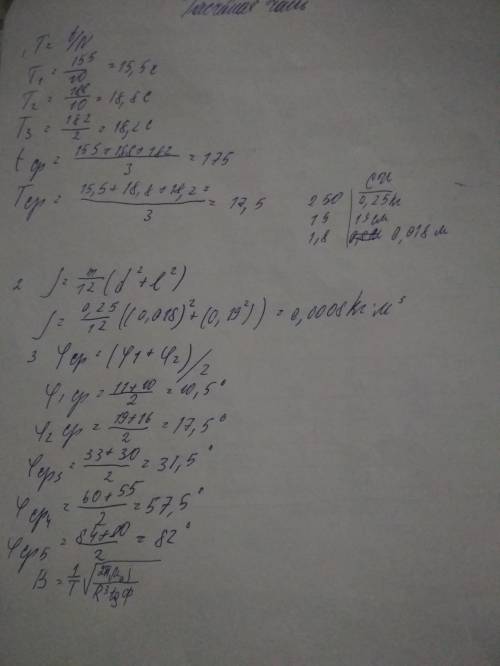 Расчётная часть
1, T = t/N
T₁ = 155/10 = 15,5 c
T₂ = 188/10 = 18,8 c
T₃ = 182/2 = 18,2 c
tср = (155 + 188 + 182)/3 = 175
Tср = (15,5 + 18,8 + 18,2)/3 = 17,5
СИ
250 | 0,25 кг
19 | 19 см
1,8 | 0,018 м
2 J = m/12 (d² + l²)
J = 0,25/12 ((0,018)² + (0,19²)) = 0,0008 кг·м³
3 φср = (φ1 + φ2)/2
φ1 ср = (11 + 10)/2 = 10,5°
φ2 ср = (19 + 16)/2 = 17,5°
φср3 = (33 + 30)/2 = 31,5°
φср4 = (60 + 55)/2 = 57,5°
φср5 = (84 + 80)/2 = 82°
B = 1/T √